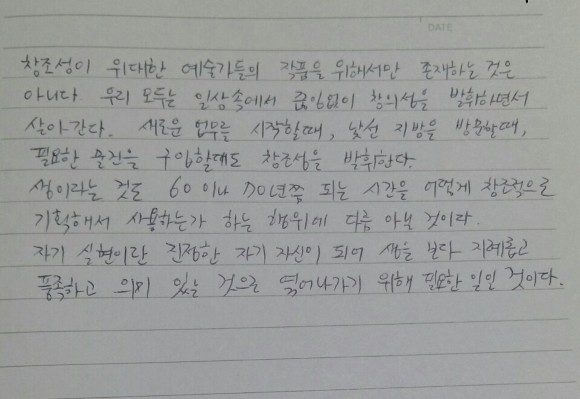 DATE
창조성이 위대한 예술가들의 작품을 위해서만 존재하는 것은
아니다. 우리 모두는 일상속에서 끊임없이 창의성을 발휘하면서
살아간다. 새로운 업무를 시작할때, 낯선 지방을 방문할때,
필요한 물건을 구입할때도 창조성을 발휘한다.
생이라는 것도 60이나 70년쯤 되는 시간을 어떻게 창조적으로
기획해서 사용하는가 하는 행위에 다름 아닐 것이다.
자기 실현이란 진정한 자기 자신이 되어 생을 보다 지혜롭고
풍족하고 의미 있는 것으로 엮어나가기 위해 필요한 일인 것이다.